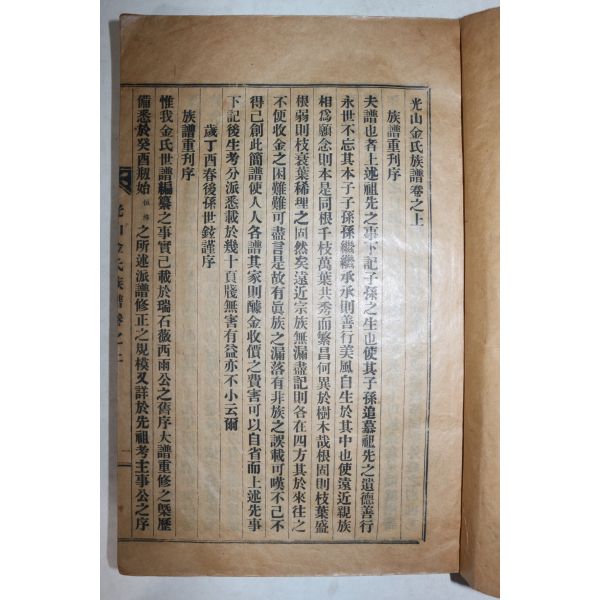 光山金氏族譜卷之上
族譜重刊序
夫譜也者上述祖先之事下記子孫之生也使其子孫追慕祖先之遺德善行
永世不忘其本子子孫孫繼繼承承則善行美風自生於其中也使遠近親族
相爲願念則本是同根千枝萬葉共秀而繁昌何異於樹木哉根固則枝葉盛
根弱則枝衰葉稀理之固然矣遠近宗族無漏盡記則各在四方其於來往之
不便收金之困難難可盡言是故有眞族之漏落有非族之誤載可嘆不已不
得已創此簡譜使人人各譜其家則醵金收價之費害可以自省而上述先事
下記後生考分派悉載於幾十頁牋無害有益亦不小云爾
歲丁酉春後孫世鈘謹序
族譜重刊序
惟我金氏世譜編纂之事實已載於瑞石薇西雨公之舊序大譜重修之槩歷
備悉於癸酉瓶始之所述派譜修正之規模又詳於先祖考主事公之序
光山金氏族譜卷之上
一